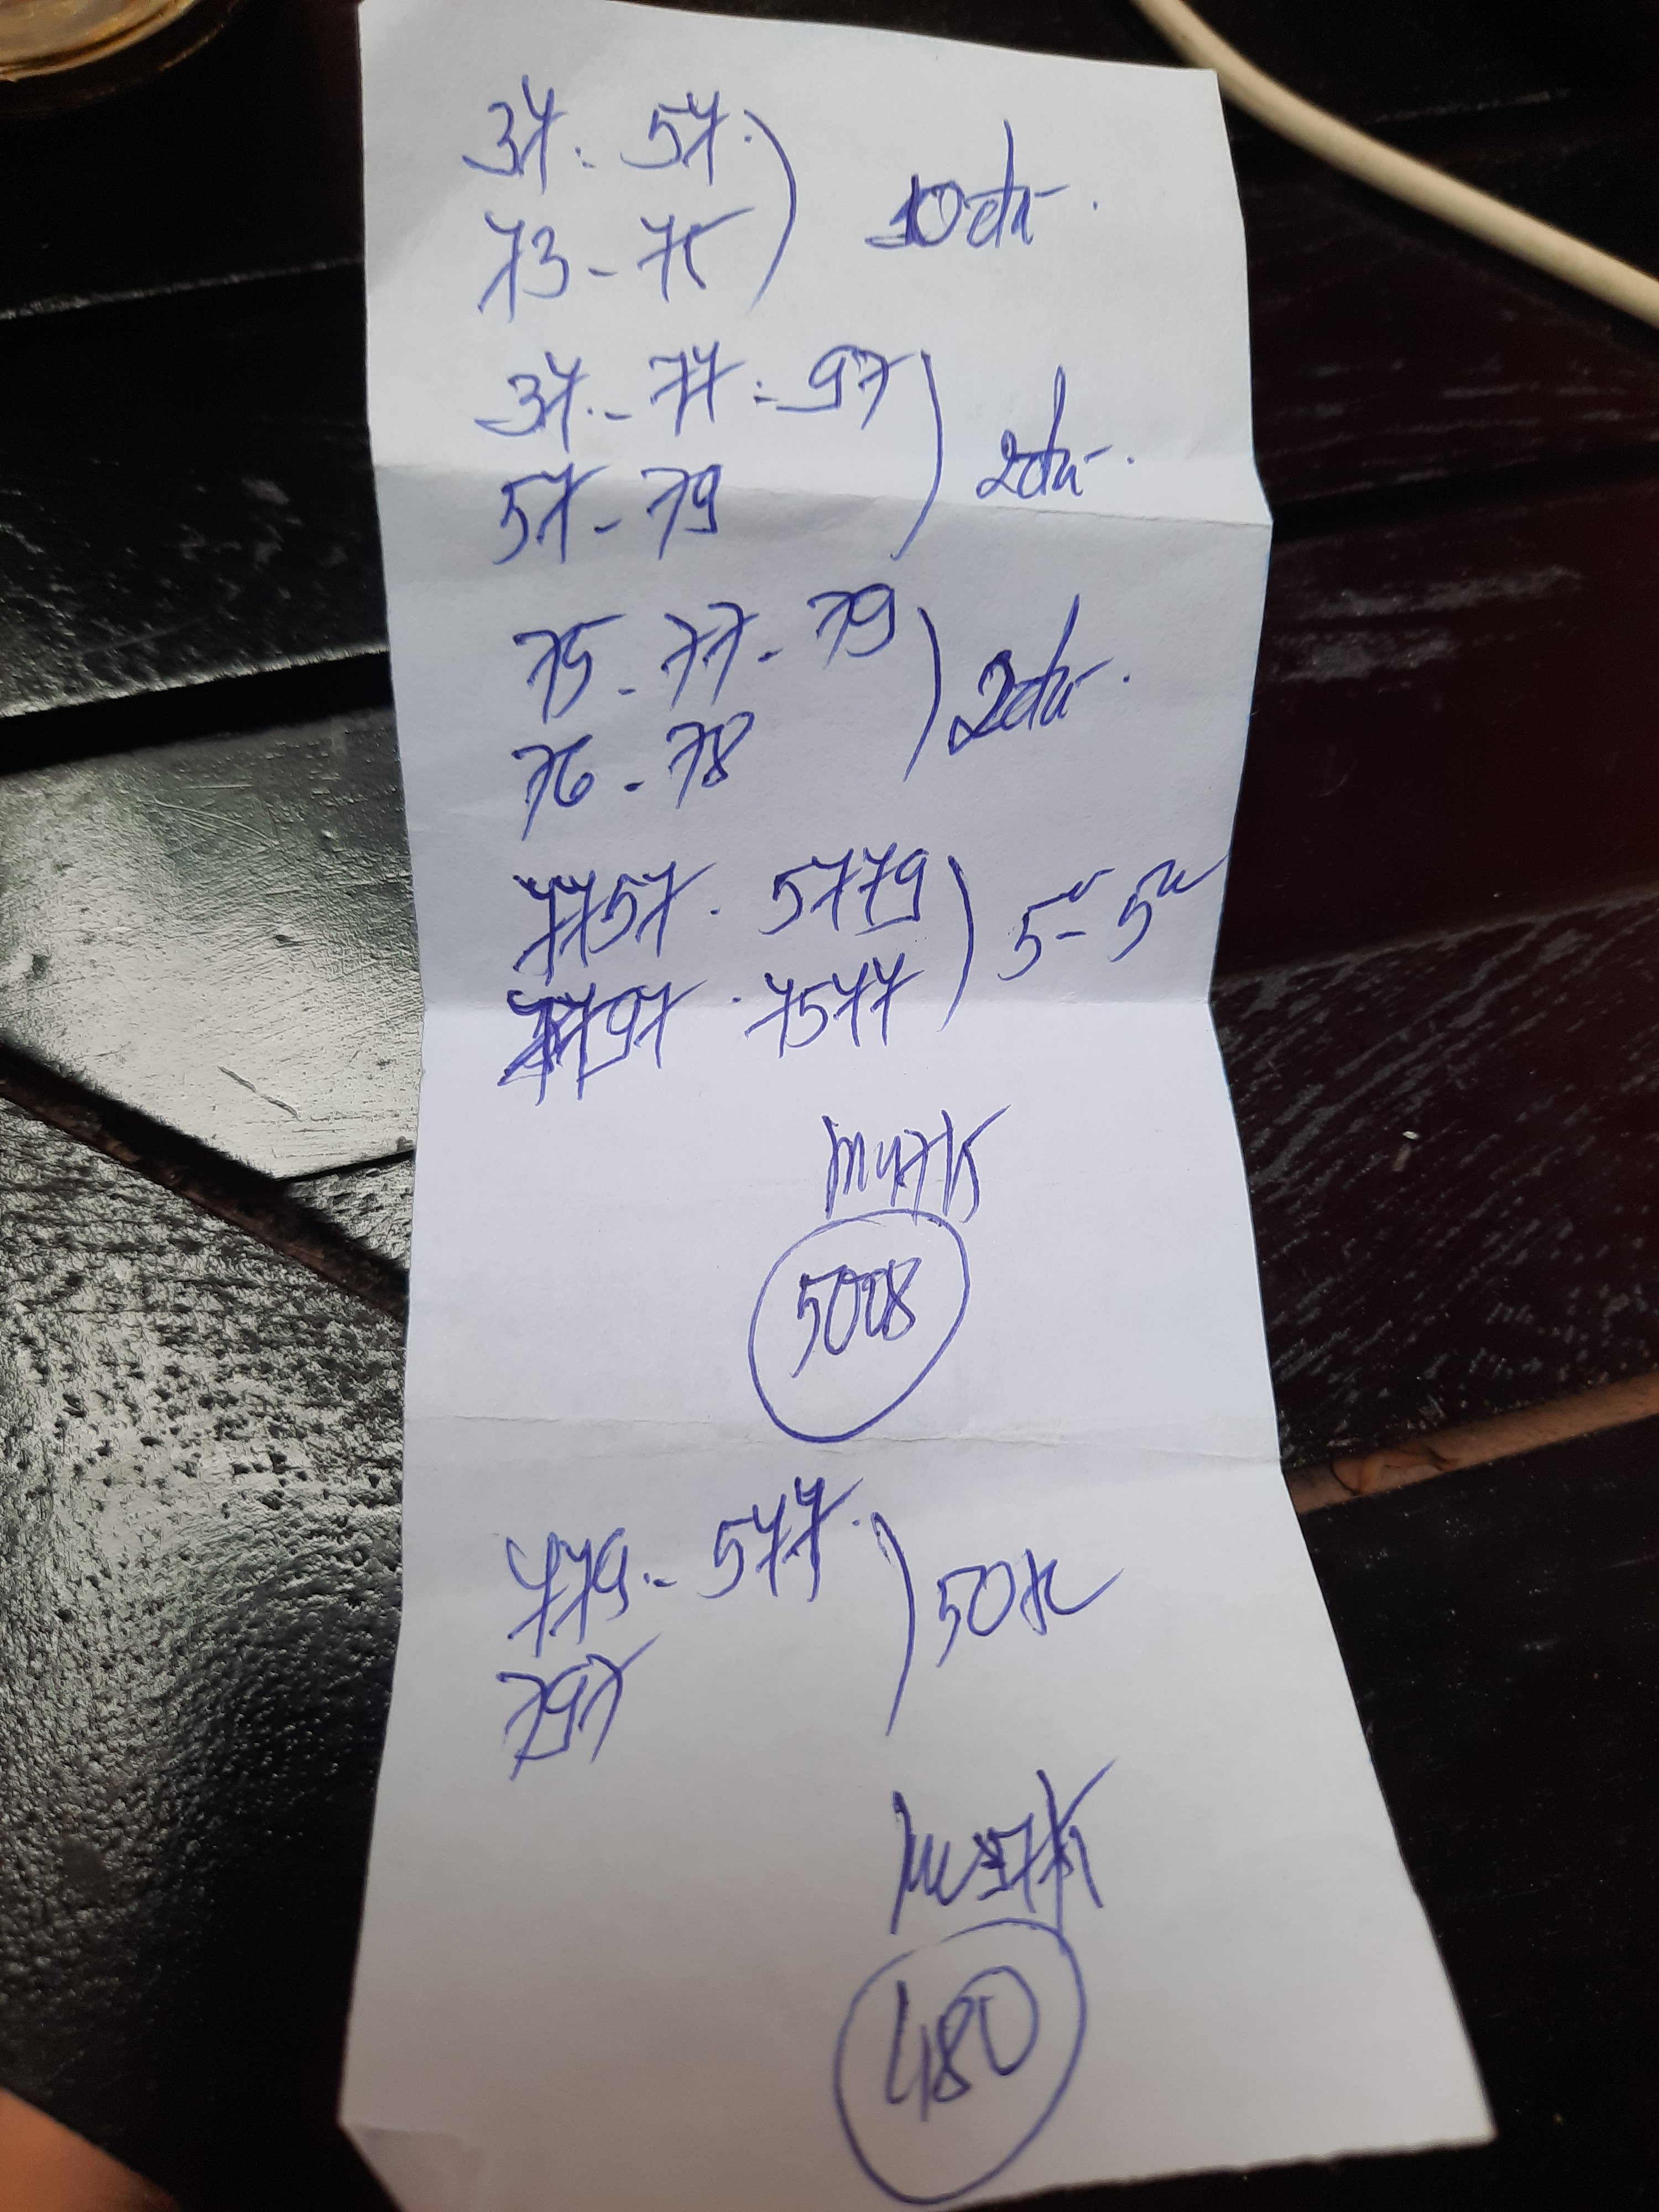 37. 57.
73 - 75
10đá.
37. - 77 - 97
57 - 79
2đá.
75 - 77 - 79
76 - 78
2đá.
7757. 5779
7797. 7577
5 - 5
5008
779. - 577.
797
50K
480